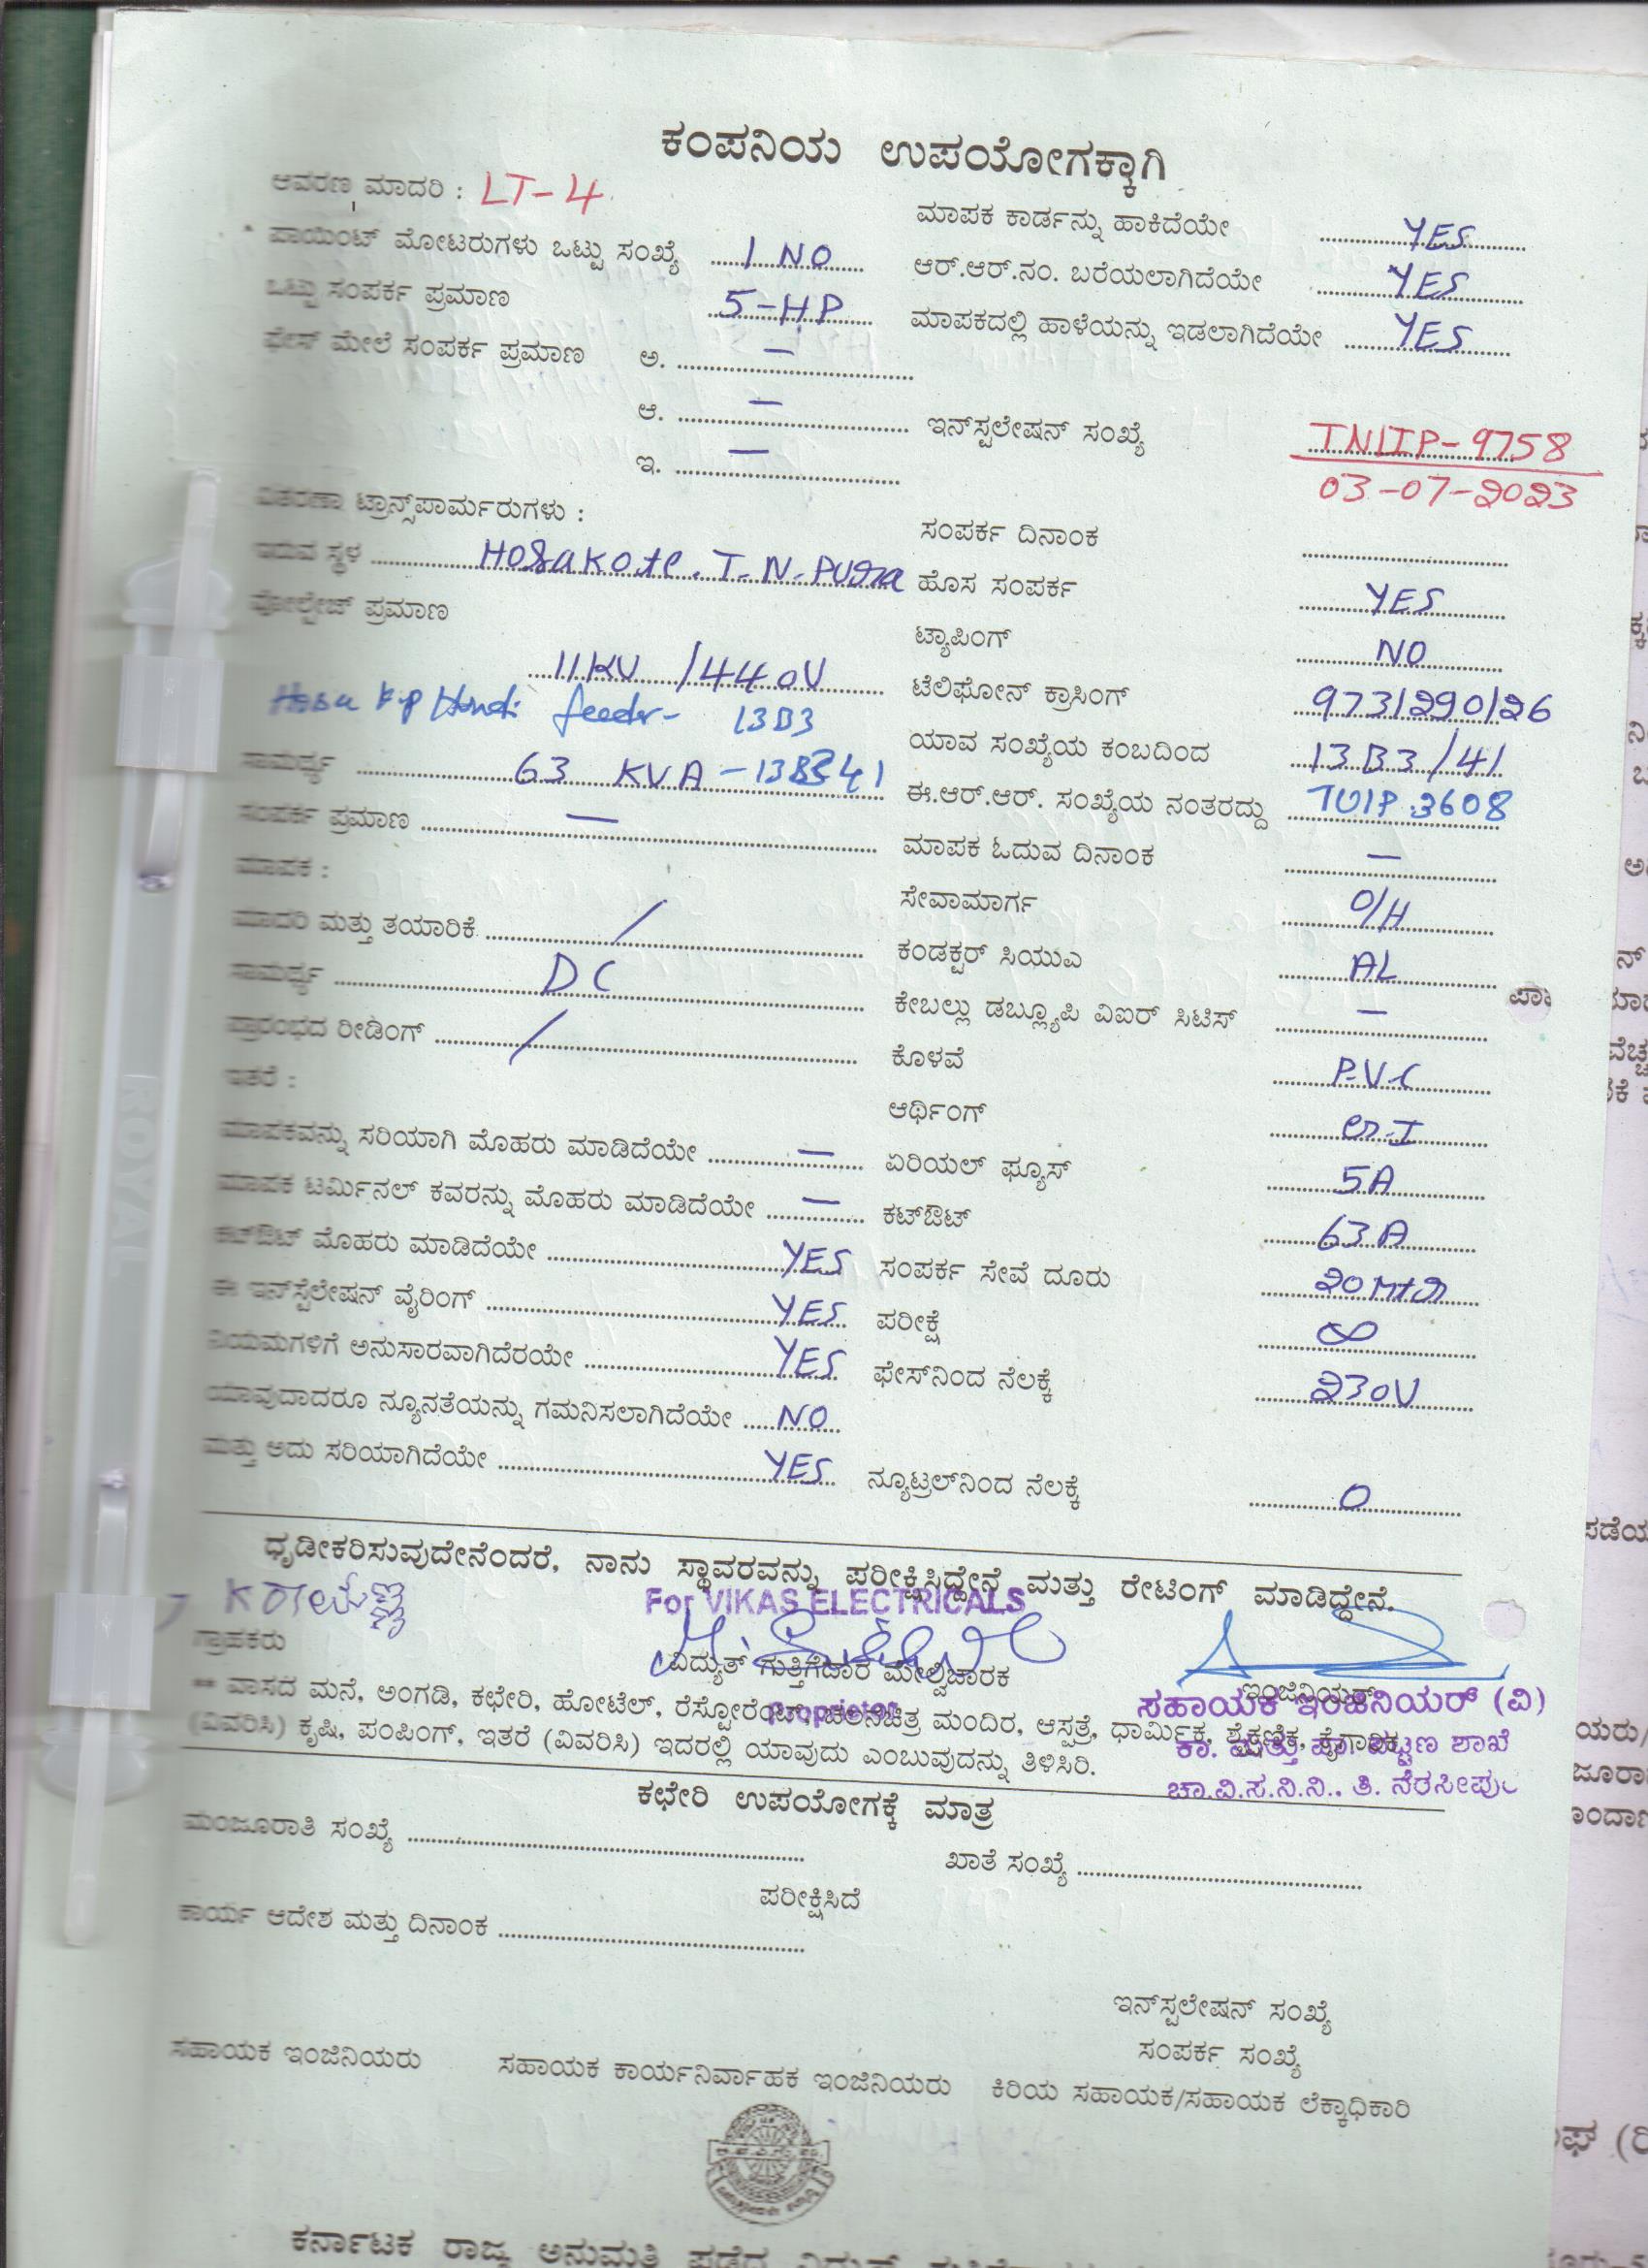 ಕಂಪನಿಯ ಉಪಯೋಗಕ್ಕಾಗಿ
ಆವರಣ ಮಾದರಿ : LT-4
ಮಾಪಕ ಕಾರ್ಡನ್ನು ಹಾಕಿದೆಯೇ YES
ಪಾಯಿಂಟ್ ಮೋಟರುಗಳು ಒಟ್ಟು ಸಂಖ್ಯೆ 1 NO
ಆರ್.ಆರ್.ನಂ. ಬರೆಯಲಾಗಿದೆಯೇ YES
ಒಟ್ಟು ಸಂಪರ್ಕ ಪ್ರಮಾಣ 5-HP
ಮಾಪಕದಲ್ಲಿ ಹಾಳೆಯನ್ನು ಇಡಲಾಗಿದೆಯೇ YES
ಫೇಸ್ ಮೇಲೆ ಸಂಪರ್ಕ ಪ್ರಮಾಣ ಅ. —
ಆ. —
ಇನ್‌ಸ್ಟಲೇಷನ್ ಸಂಖ್ಯೆ TNLIP-9758
ಇ. —
03-07-2023
ವಿತರಣಾ ಟ್ರಾನ್ಸ್‌ಪಾರ್ಮರುಗಳು :
ಸಂಪರ್ಕ ದಿನಾಂಕ
ಇರುವ ಸ್ಥಳ Hosakote. T-N-Pura
ಹೊಸ ಸಂಪರ್ಕ YES
ವೋಲ್ಟೇಜ್ ಪ್ರಮಾಣ
ಟ್ಯಾಪಿಂಗ್ NO
11KV /440V
ಟೆಲಿಫೋನ್ ಕ್ರಾಸಿಂಗ್ 9731290126
feeder- 13B3
ಯಾವ ಸಂಖ್ಯೆಯ ಕಂಬದಿಂದ 13B3/41
ಸಾಮರ್ಥ್ಯ 63 KVA -13B341
ಈ.ಆರ್.ಆರ್. ಸಂಖ್ಯೆಯ ನಂತರದ್ದು TUIP 3608
ಸಂಪರ್ಕ ಪ್ರಮಾಣ —
ಮಾಪಕ ಓದುವ ದಿನಾಂಕ —
ಮಾಪಕ :
ಸೇವಾಮಾರ್ಗ O/H
ಮಾದರಿ ಮತ್ತು ತಯಾರಿಕೆ /
ಕಂಡಕ್ಟರ್ ಸಿಯುಎ AL
ಸಾಮರ್ಥ್ಯ DC
ಕೇಬಲ್ಲು ಡಬ್ಲ್ಯೂಪಿ ವಿಐರ್ ಸಿಟಿಸ್ —
ಪ್ರಾರಂಭದ ರೀಡಿಂಗ್ /
ಕೊಳವೆ P.V.C
ಇತರೆ :
ಆರ್ಥಿಂಗ್
ಮಾಪಕವನ್ನು ಸರಿಯಾಗಿ ಮೊಹರು ಮಾಡಿದೆಯೇ —
ಏರಿಯಲ್ ಫ್ಯೂಸ್ 5A
ಮಾಪಕ ಟರ್ಮಿನಲ್ ಕವರನ್ನು ಮೊಹರು ಮಾಡಿದೆಯೇ —
ಕಟ್‌ಔಟ್ 63A
ಕಟ್‌ಔಟ್ ಮೊಹರು ಮಾಡಿದೆಯೇ YES
ಸಂಪರ್ಕ ಸೇವೆ ದೂರು 20 Mtr
ಈ ಇನ್‌ಸ್ಟೆಲೇಷನ್ ವೈರಿಂಗ್ YES
ಪರೀಕ್ಷೆ ∞
ನಿಯಮಗಳಿಗೆ ಅನುಸಾರವಾಗಿದೆರಯೇ YES
ಫೇಸ್‌ನಿಂದ ನೆಲಕ್ಕೆ 230V
ಯಾವುದಾದರೂ ನ್ಯೂನತೆಯನ್ನು ಗಮನಿಸಲಾಗಿದೆಯೇ NO
ಮತ್ತು ಅದು ಸರಿಯಾಗಿದೆಯೇ YES
ನ್ಯೂಟ್ರಲ್‌ನಿಂದ ನೆಲಕ್ಕೆ 0
ಧೃಡೀಕರಿಸುವುದೇನೆಂದರೆ, ನಾನು ಸ್ಥಾವರವನ್ನು ಪರೀಕ್ಷಿಸಿದ್ದೇನೆ ಮತ್ತು ರೇಟಿಂಗ್ ಮಾಡಿದ್ದೇನೆ.
For VIKAS ELECTRICALS
ಗ್ರಾಹಕರು
ವಿದ್ಯುತ್ ಗುತ್ತಿಗೆದಾರ ಮೇಲ್ವಿಚಾರಕ
ಇಂಜಿನಿಯರ್
Proprietor
ಸಹಾಯಕ ಇಂಜಿನಿಯರ್ (ವಿ)
** ವಾಸದ ಮನೆ, ಅಂಗಡಿ, ಕಛೇರಿ, ಹೋಟೆಲ್, ರೆಸ್ಟೋರೆಂಟ್, ಚಲನಚಿತ್ರ ಮಂದಿರ, ಆಸ್ಪತ್ರೆ, ಧಾರ್ಮಿಕ, ಶೈಕ್ಷಣಿಕ, ಕೈಗಾರಿಕ,
(ವಿವರಿಸಿ) ಕೃಷಿ, ಪಂಪಿಂಗ್, ಇತರೆ (ವಿವರಿಸಿ) ಇದರಲ್ಲಿ ಯಾವುದು ಎಂಬುವುದನ್ನು ತಿಳಿಸಿರಿ.
ಕಾ. ಮತ್ತು ಪಾ. ಪಟ್ಟಣ ಶಾಖೆ
ಚಾ.ವಿ.ಸ.ನಿ.ನಿ., ತಿ. ನರಸೀಪುರ
ಕಛೇರಿ ಉಪಯೋಗಕ್ಕೆ ಮಾತ್ರ
ಮಂಜೂರಾತಿ ಸಂಖ್ಯೆ
ಖಾತೆ ಸಂಖ್ಯೆ
ಪರೀಕ್ಷಿಸಿದೆ
ಕಾರ್ಯ ಆದೇಶ ಮತ್ತು ದಿನಾಂಕ
ಇನ್‌ಸ್ಟಲೇಷನ್ ಸಂಖ್ಯೆ
ಸಂಪರ್ಕ ಸಂಖ್ಯೆ
ಸಹಾಯಕ ಇಂಜಿನಿಯರು ಸಹಾಯಕ ಕಾರ್ಯನಿರ್ವಾಹಕ ಇಂಜಿನಿಯರು ಕಿರಿಯ ಸಹಾಯಕ/ಸಹಾಯಕ ಲೆಕ್ಕಾಧಿಕಾರಿ
ಕರ್ನಾಟಕ ರಾಜ್ಯ ಅನುಮತಿ ಪಡೆದ ವಿದ್ಯುತ್